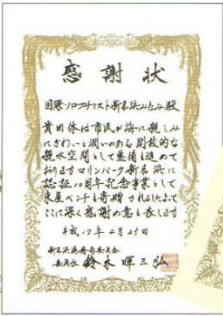 感謝状
国際ソロプチミスト新居浜みなみ殿
貴団体は市民が海に親しみ
にぎわいと潤いのある開放的な
親水空間として整備を進めて
おりますマリンパーク新居浜に
認証10周年記念事業として
床屋ベンチを寄贈されました
ここに深く感謝の意を表します
平成17年4月29日
新居浜港務局委員会
委員長 鈴木暉三弘